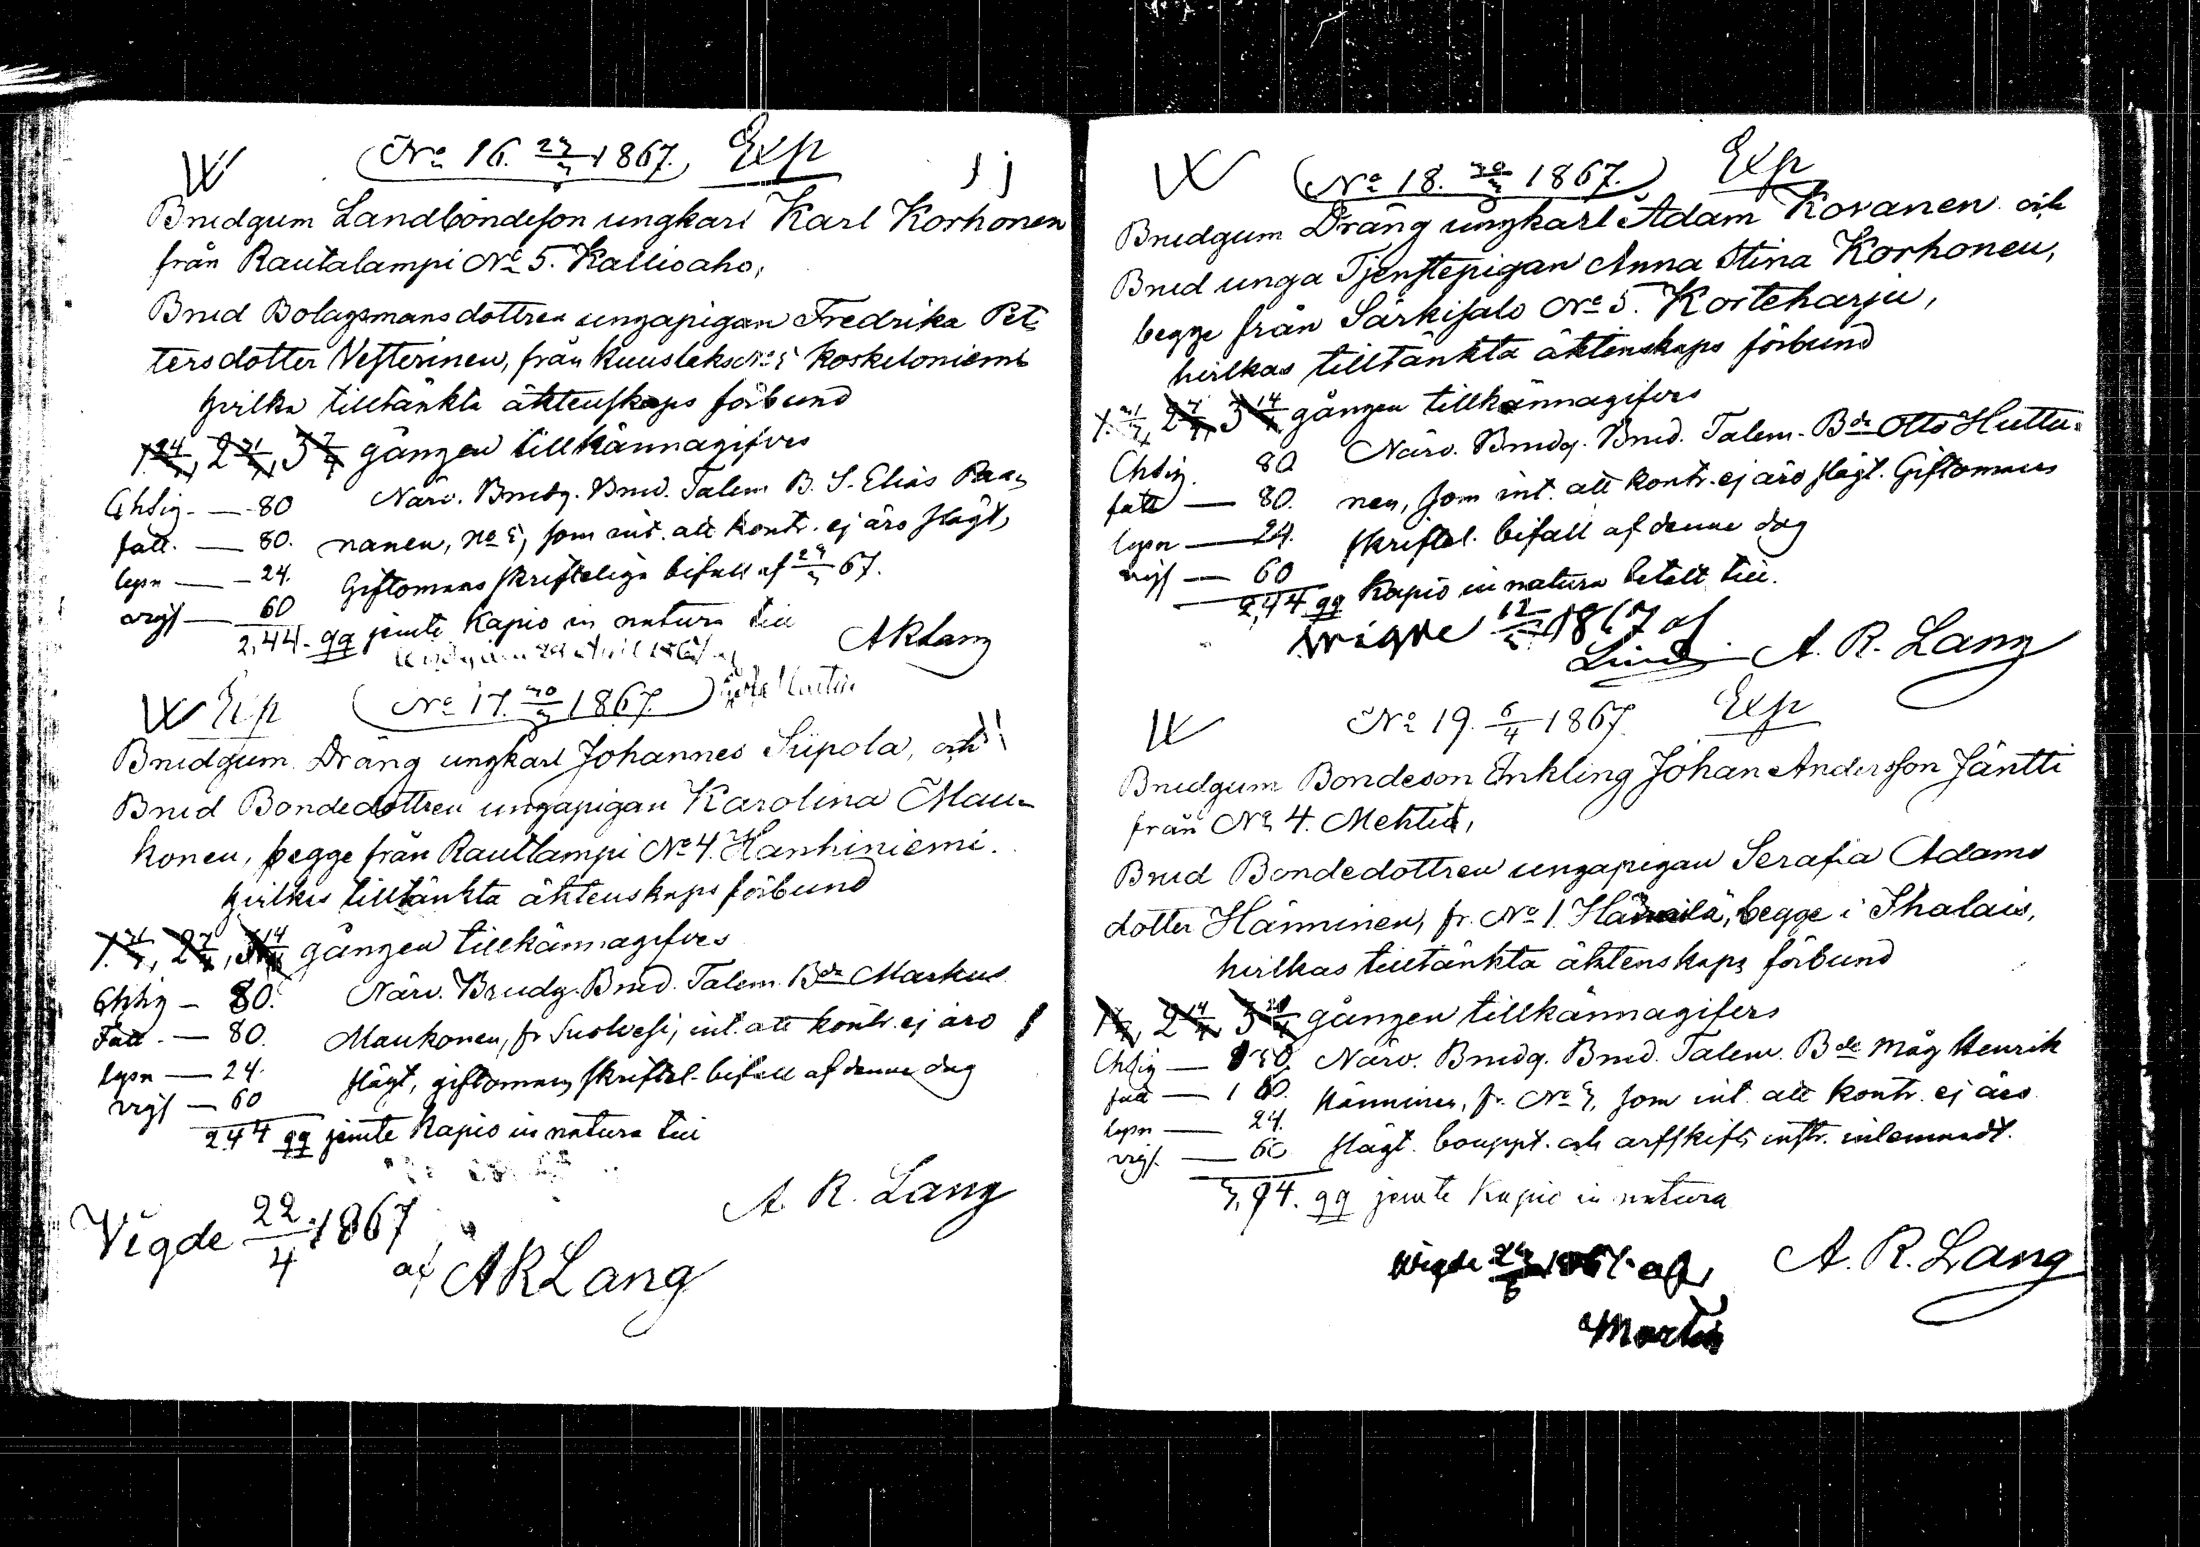 No 16. 23/3 1867. Exp
Brudgum Landbondeson ungkarl Karl Korhonen
från Rautalampi No 5. Kallioaho,
Brud Bolagsmansdottren ungapigan Fredrika Pet-
tersdotter Vesterinen, från No 5 Koskeloniemi
hvilka tilltänkta äktenskaps förbund
1 24/3, 2 31/3, 3 7/4 gången tillkännagifves
Närv. Brudg. Brud. Talem. B. S. Elias Paa-
Chdig. — 80
nanen, No 5, som int. att kontr. ej äro slägt,
fatt. — 80.
Giftomans skrifteliga bifall af 23/3 67.
lysn — 24.
vigs — 60
2,44. qq jemte Kapio in natura till
April 1867 af
AR Lang
Martin
Exp No 17. 30/3 1867.
Brudgum Dräng ungkarl Johannes Siipola, och
Brud Bondedottren ungapigan Karolina Mau-
konen, begge från Rautlampi No 4. Hanhiniemi.
hvilkas tilltänkta äktenskaps förbund
1. 31/3, 2 7/4, 3 14/4 gången tillkännagifves
Närv. Brudg. Brud. Talem. Bde Markus
Chdig — 80.
Maukonen, fr Suolvesi, int. att kontr. ej äro
Fatt. — 80.
slägt, giftomans skriftel. bifall af denne dag
lysn — 24.
vigs — 60
2,44 qq jemte Kapio in natura till
A. R. Lang
Vigde 22/4 1867
af AR Lang
No 18. 30/3 1867. Exp
Brudgum Dräng ungkarl Adam Kovanen och
Brud unga Tjenstepigan Anna Stina Korhonen,
begge från Särkisalo No 5. Korteharju,
hvilkas tilltänkta äktenskaps förbund
1. 31/3, 2 7/4, 3 14/4 gången tillkännagifves
Närv. Brudg. Brud. Talem. Bde Otto Huttu-
Chdig. 80
nen, som int. att kontr. ej äro slägt. Giftomans
fatt — 80.
skriftel. bifall af denne dag
lysn — 24.
vigs — 60
2,44 qq Kapio in natura betalt till.
Wigde 12/5 1867 af
A. R. Lang
No 19. 6/4 1867. Exp
Brudgum Bondeson Enkling Johan Andersson Jäntti
från No 4. Mehtiö,
Brud Bondedottren ungapigan Serafia Adams
dotter Hänninen, fr. No 1. begge i
hvilkas tilltänkta äktenskaps förbund
1 7/4, 2 14/4, 3 gången tillkännagifves
Närv. Brudg. Brud. Talem. Bde Måg Henrik
Chdig —
Hänninen, fr. No 3, som int. att kontr. ej äro
fatt — 1 60.
lysn — 24.
slägt. bouppt. och arfskifts instr. inlemnadt.
vigs. — 60
3,94. qq jemte Kapio in natura
A. R. Lang
wigde 1867 af
Martin